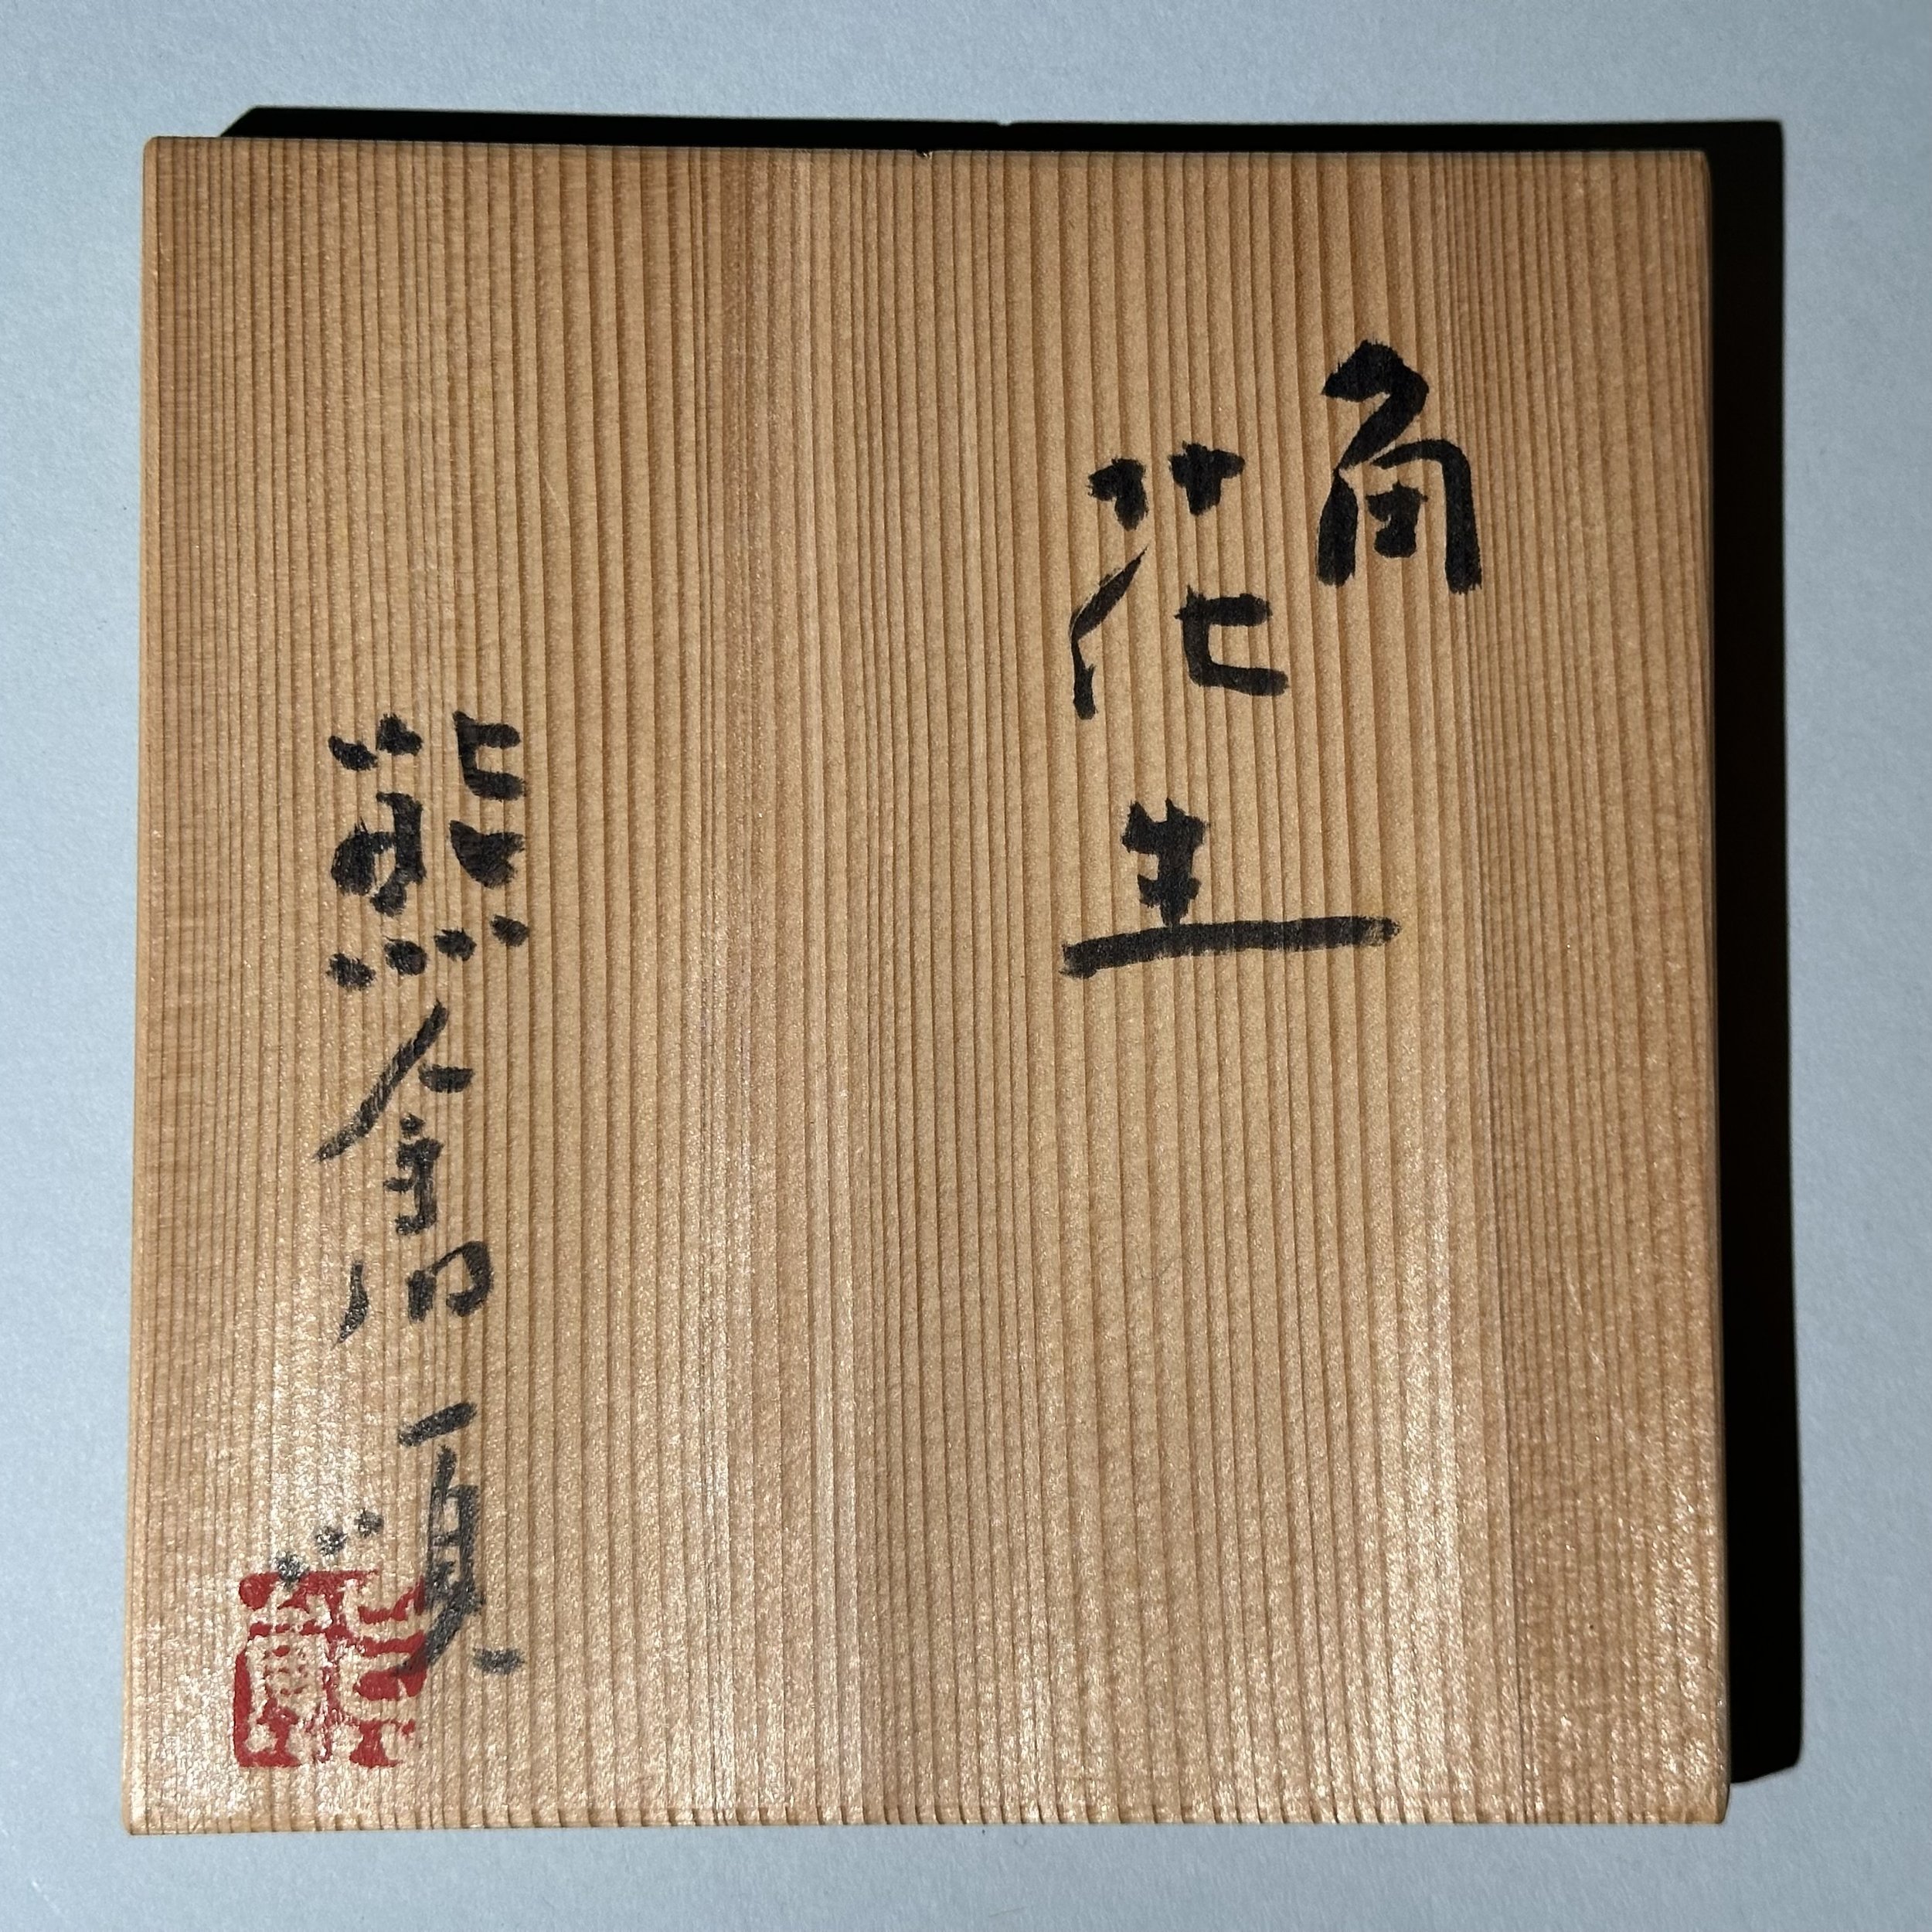 角
花生
熊倉順